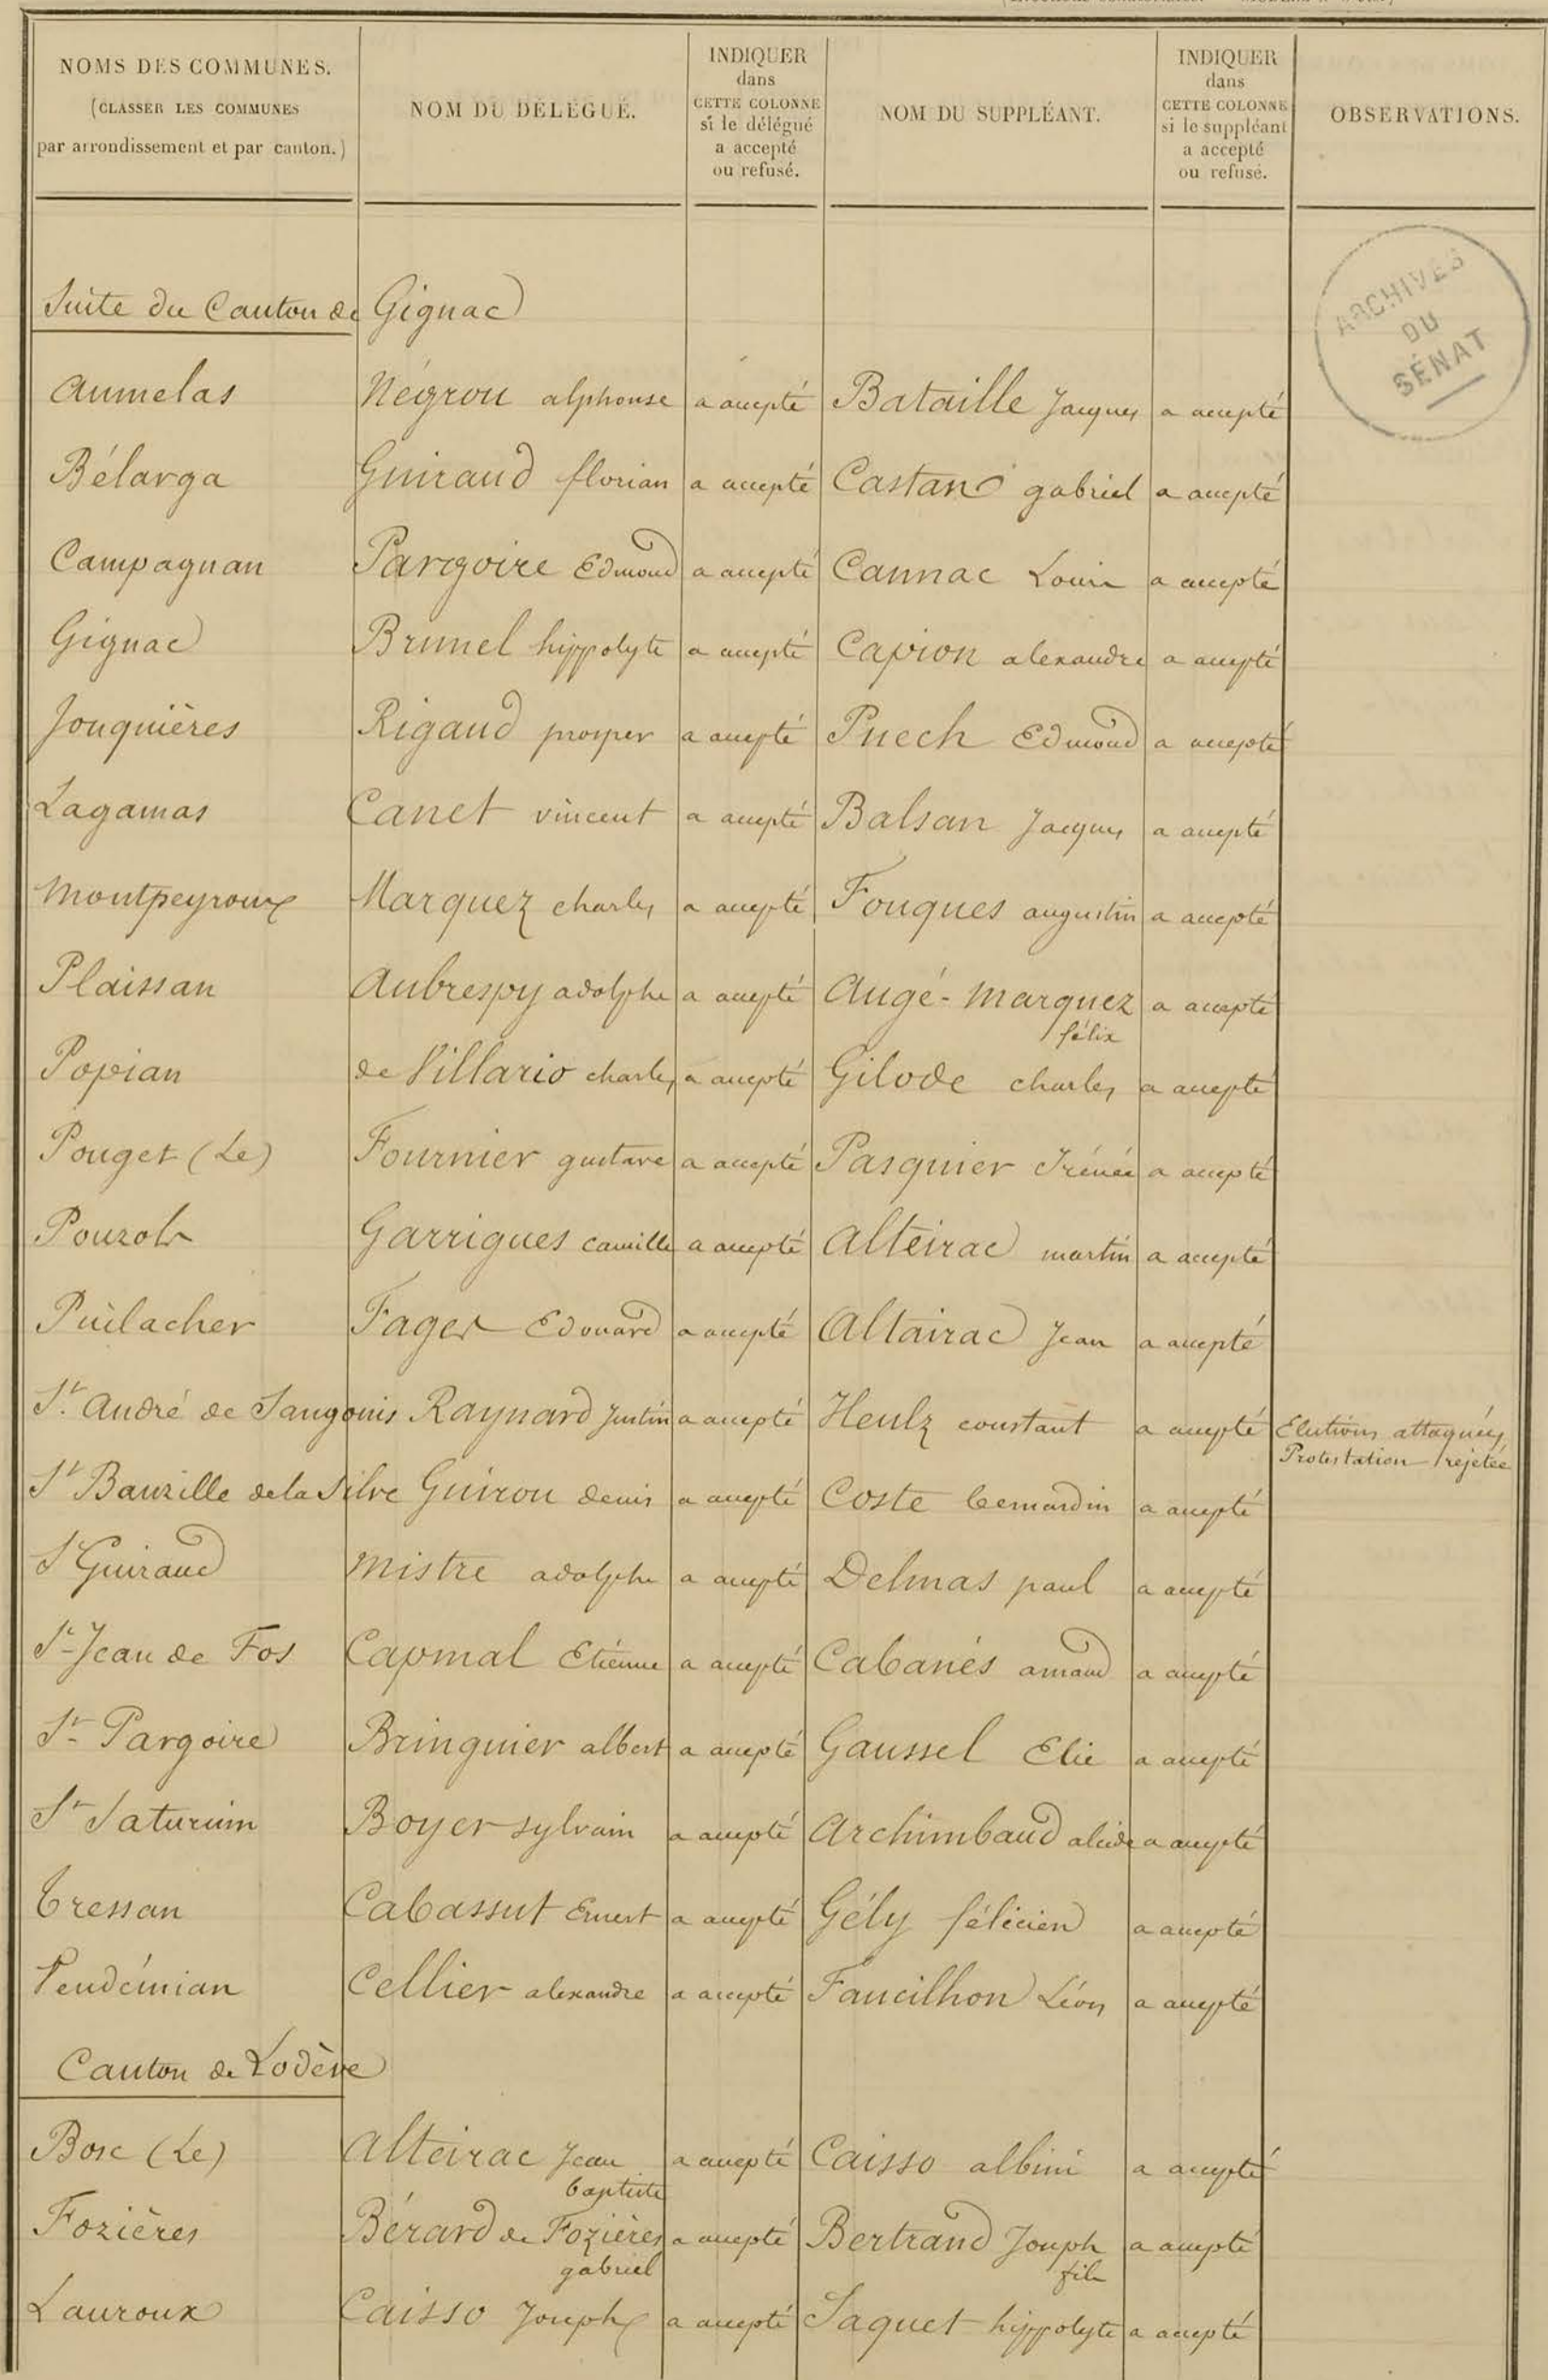 NOMS DES COMMUNES.
(CLASSER LES COMMUNES
par arrondissement et par canton.)
NOM DU DÉLÉGUÉ.
INDIQUER
dans
CETTE COLONNE
si le délégué
a accepté
ou refusé.
NOM DU SUPPLÉANT.
INDIQUER
dans
CETTE COLONNE
si le suppléant
a accepté
ou refusé.
OBSERVATIONS.
ARCHIVES
DU
SÉNAT
Suite du Canton de Gignac
Aumelas Négrou alphonse a accepté Bataille Jacques a accepté
Bélarga Guiraud florian a accepté Castan gabriel a accepté
Campagnan Pargoire Edmond a accepté Cannac Louis a accepté
Gignac Brunel hippolyte a accepté Capion alexandre a accepté
Jonquières Rigaud prosper a accepté Puech Edmond a accepté
Lagamas Canet vincent a accepté Balsan Jacques a accepté
Montpeyroux Marquez charles a accepté Fouques augustin a accepté
Plaissan Aubrespy adolphe a accepté Augé-Marquez félix a accepté
Popian de Villario charles a accepté Gilode charles a accepté
Pouget (Le) Fournier gustave a accepté Pasquier Irénée a accepté
Pouzols Garrigues camille a accepté Alteirac martin a accepté
Puilacher Fages Edouard a accepté Altairac Jean a accepté
St. André de Sangonis Raynard Justin a accepté Heulz constant a accepté Elections attaquées
Protestation rejetée
St Bauzille de la Silve Guirou denis a accepté Coste bernardin a accepté
St Guiraud Mistre adolphe a accepté Delmas paul a accepté
St-Jean de Fos Capmal Etienne a accepté Cabanés amand a accepté
St- Pargoire Bringuier albert a accepté Gaussel Elie a accepté
St Saturnin Boyer sylvain a accepté Archimbaud alcide a accepté
Tressan Cabassut Ernest a accepté Gély félicien a accepté
Vendémian Cellier alexandre a accepté Faucilhon Léon a accepté
Canton de Lodève
Bosc (Le) Alteirac Jean baptiste a accepté Caisso albin a accepté
Fozières Bérard de Fozières gabriel a accepté Bertrand Joseph fils a accepté
Lauroux Caisso Joseph a accepté Saquet hippolyte a accepté